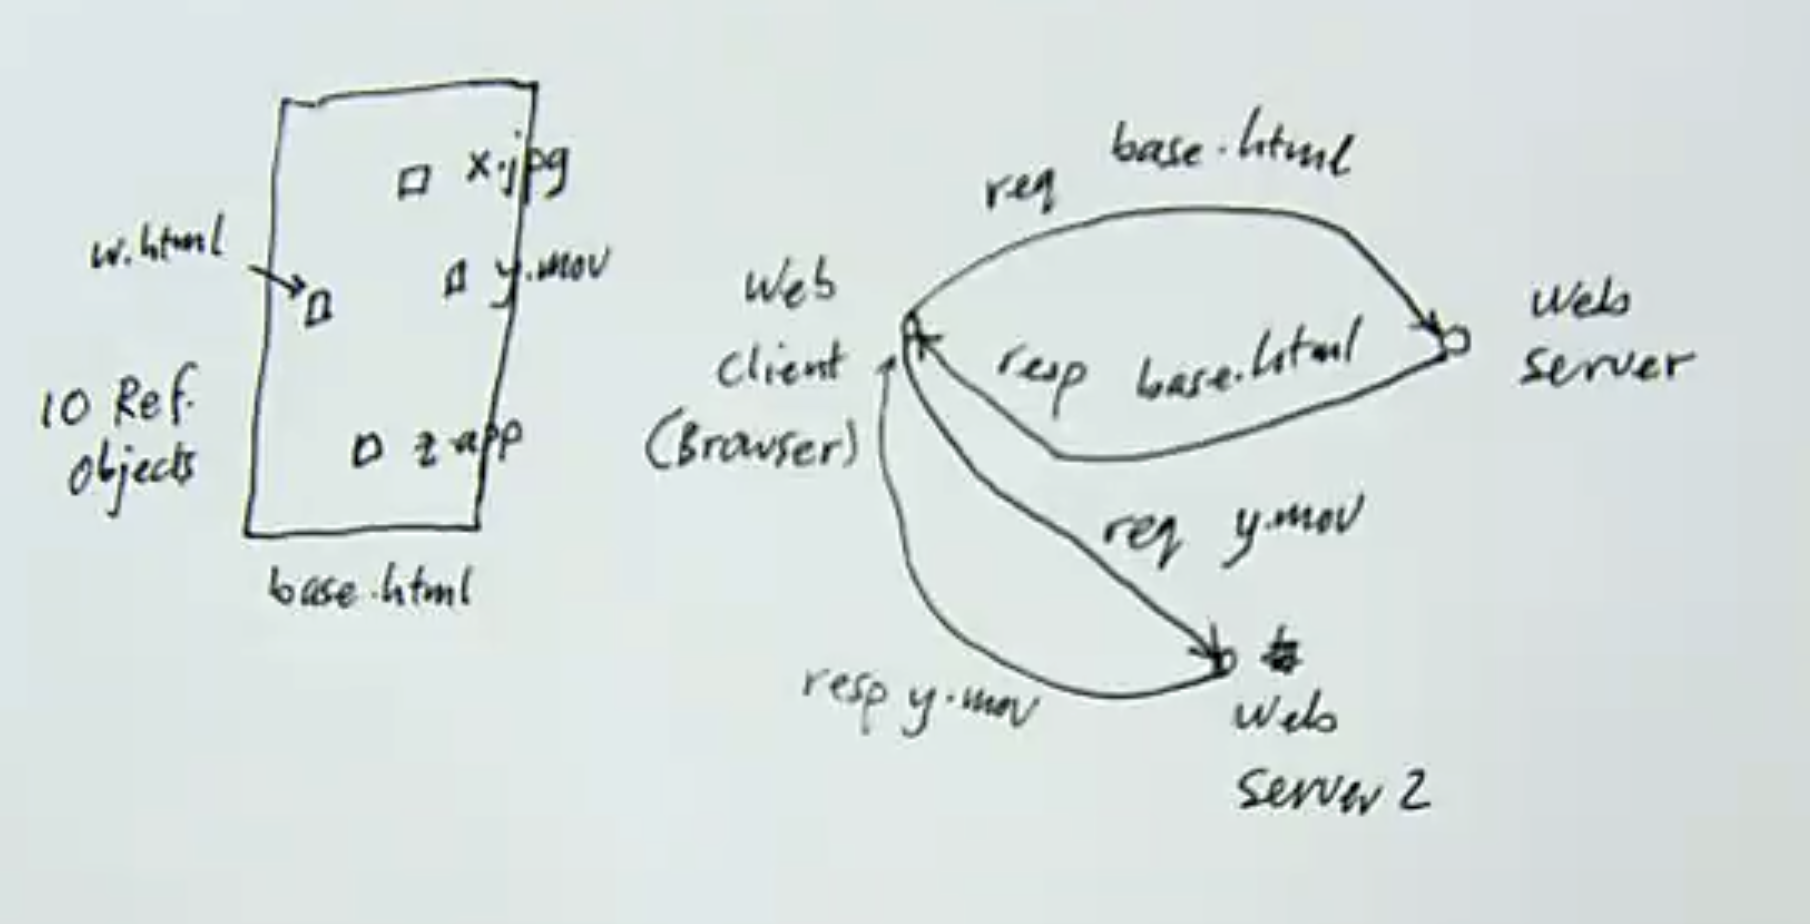 x.jpg
w.html
y.mov
10 Ref.
Objects
z.app
base.html
req base.html
Web
Client
(Browser)
resp base.html
Web
Server
req y.mov
resp y.mov
Web
Server 2